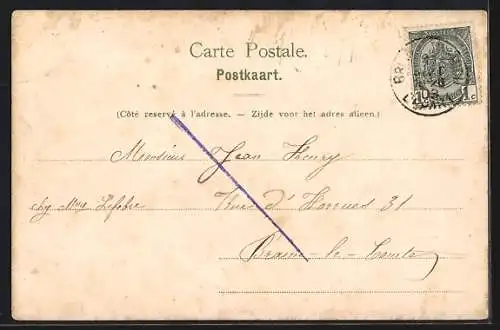 Carte Postale.
Postkaart.
(Côté reservé à l'adresse. – Zijde voor het adres alleen.)
Monsieur Jean Henry
chez Mme Lefebre d' 31
Braine-le-Comte
1c